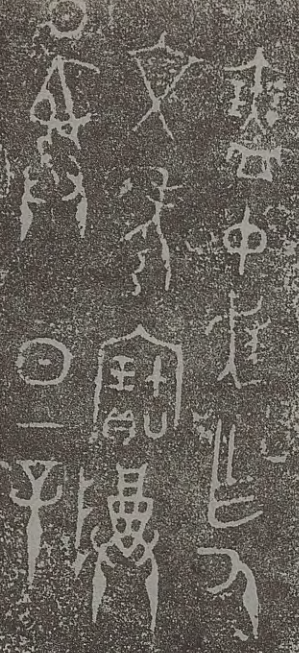 中隹乍氒
文考寶尊
彝日辛